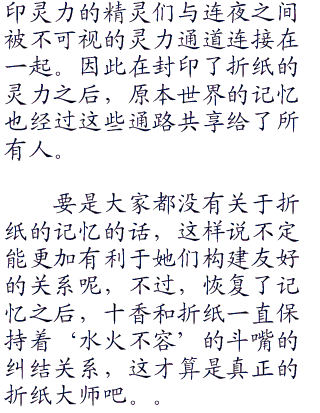 印灵力的精灵们与连夜之间
被不可视的灵力通道连接在
一起。因此在封印了折纸的
灵力之后，原本世界的记忆
也经过这些通路共享给了所
有人。
要是大家都没有关于折
纸的记忆的话，这样说不定
能更加有利于她们构建友好
的关系呢，不过，恢复了记
忆之后，十香和折纸一直保
持着‘水火不容’的斗嘴的
纠结关系，这才算是真正的
折纸大师吧。。